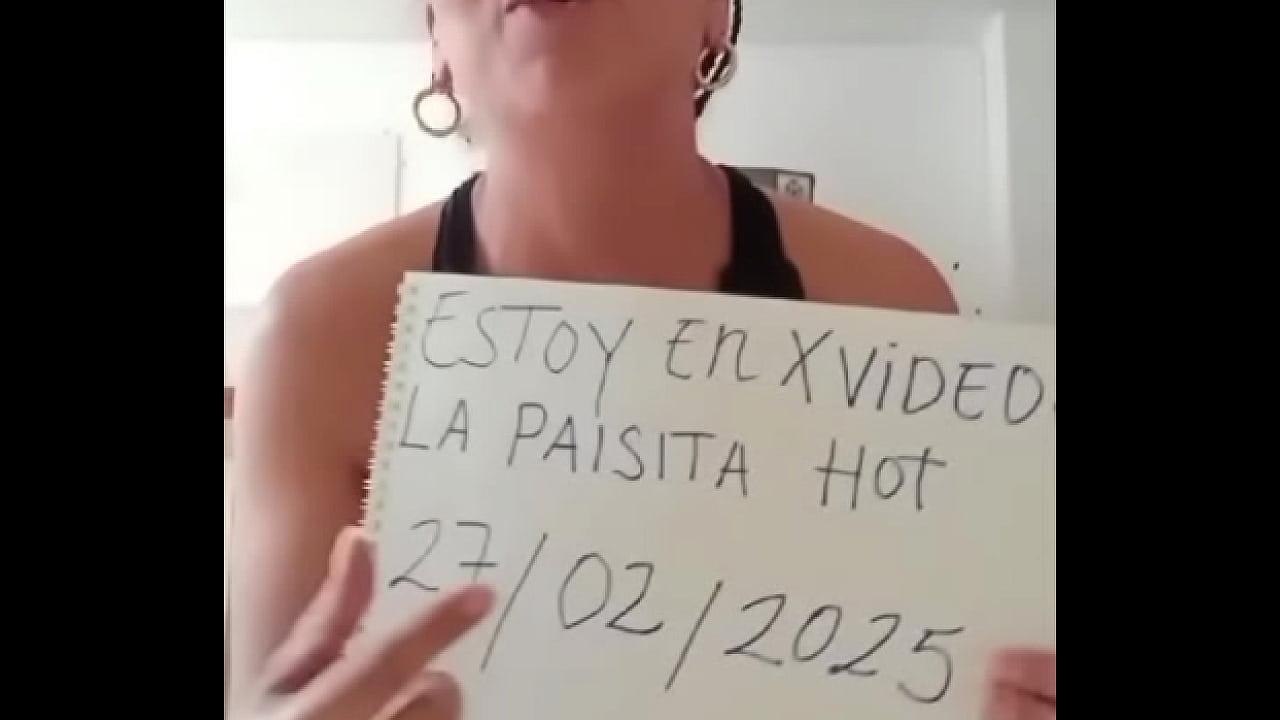 ESTOY En XViDEO
LA PAiSITA Hot
27/02/2025